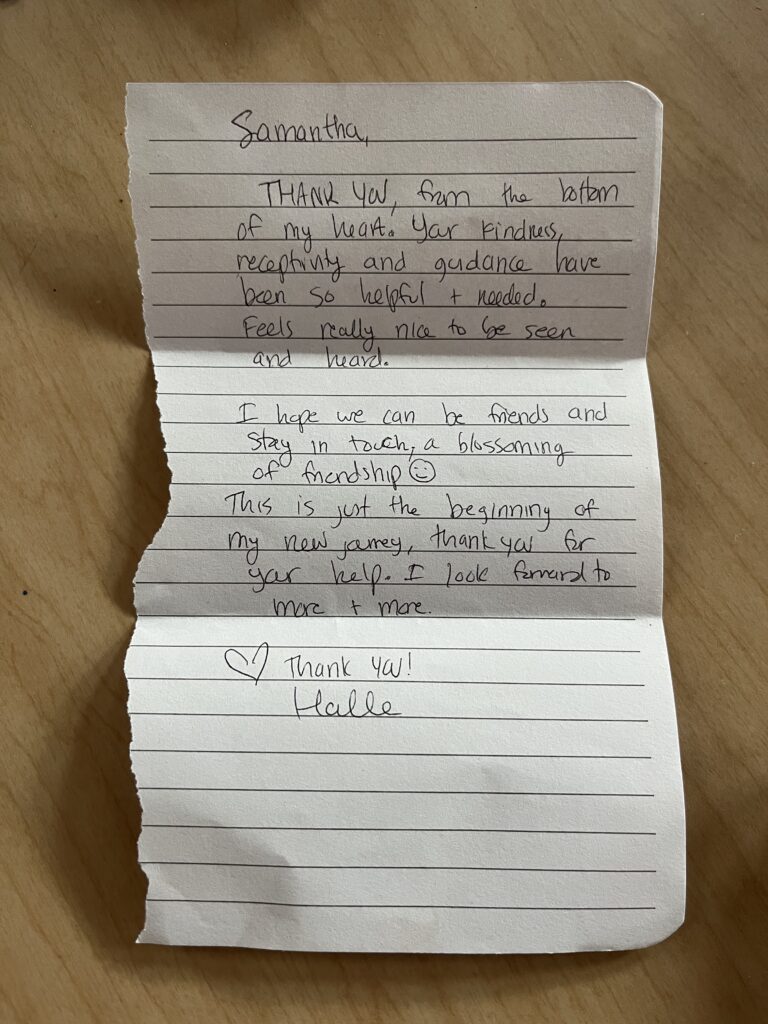 Samantha,
THANK YOU, from the bottom
of my heart. Your kindness,
receptivity and guidance have
been so helpful + needed.
Feels really nice to be seen
and heard.
I hope we can be friends and
stay in touch, a blossoming
of friendship ☺
This is just the beginning of
my new journey, thank you for
your help. I look forward to
more + more.
♡ Thank you!
Halle